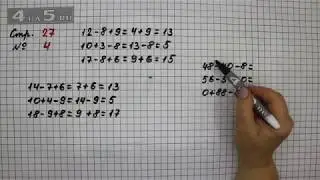 Стр. 27
№ 4
12-8+9=4+9=13
10+3-8=13-8=5
17-8+6=9+6=15
14-7+6=7+6=13
10+4-9=14-9=5
18-9+8=9+8=17
48-40-8=
0+88-